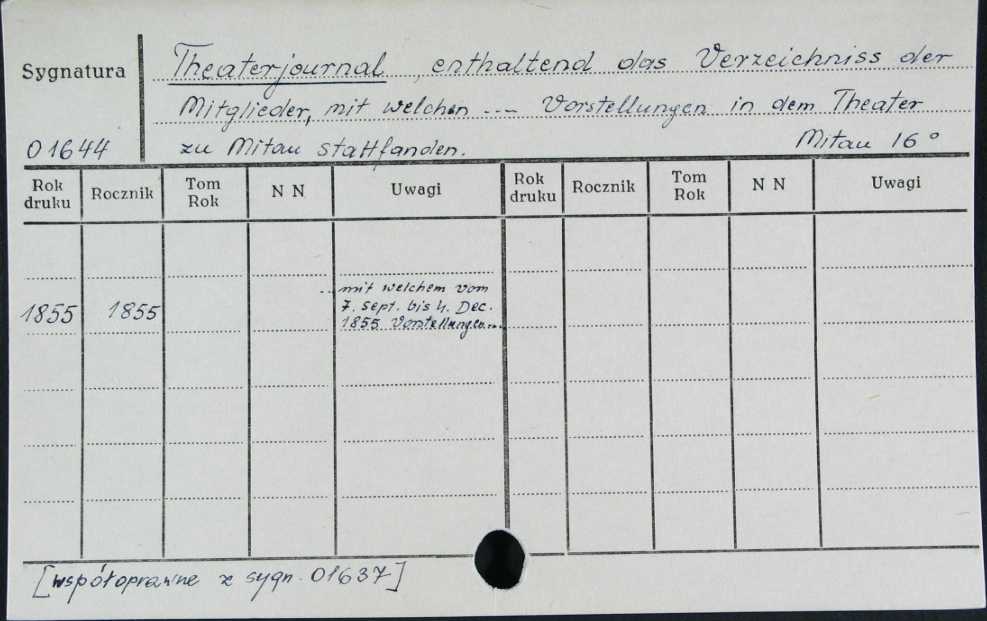 Sygnatura
Theaterjournal, enthaltend das Verzeichniss der
Mitglieder, mit welchen --- Vorstellungen in dem Theater
01644 zu Mitau stattfanden. Mitau 16°
Rok druku Rocznik Tom Rok N N Uwagi Rok druku Rocznik Tom Rok N N Uwagi
...mit welchem vom
7. Sept. bis 4. Dec.
1855 1855 1855 Vorstellungen...
[współoprawne z sygn. 01637]